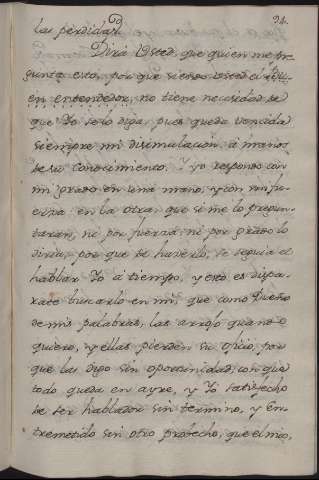 94.
las perdidas.
Dirá Usted, que quien me pre
gunta esto, por que siendo Usted el
en entendedor, no tiene necesidad de
que Yo se lo diga, pues queda vencida
siempre mi disimulacion à manos
de su conocimiento. Y yo respondo con
mi grado en una mano, y con mi fu-
erza en la otra, que si me lo pregun-
taran, ni por fuerza, ni por grado lo
diria, por que de haverlo, se seguia el
hablar Yo à tiempo, y esto es dispa-
rate buscarlo en mi, que como Dueño
de mis palabras, las arrojo quando
quiero, y ellas pierden su oficio, por
que las digo sin oportunidad, con que
todo queda en ayre, y Yo satisfecho
de ser hablador sin termino, y En-
tremetido sin otro probecho, que el mio,